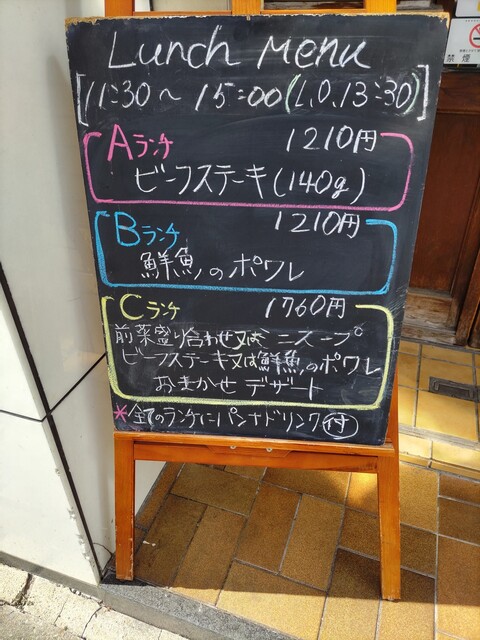 Lunch Menu
[11:30〜15:00(L,O,13:30)]
Aランチ 1210円
ビーフステーキ(140g)
Bランチ 1210円
鮮魚のポワレ
Cランチ 1760円
前菜盛り合わせ又はミニスープ
ビーフステーキ又は鮮魚のポワレ
おまかせデザート
*全てのランチにパンとドリンク付
禁煙